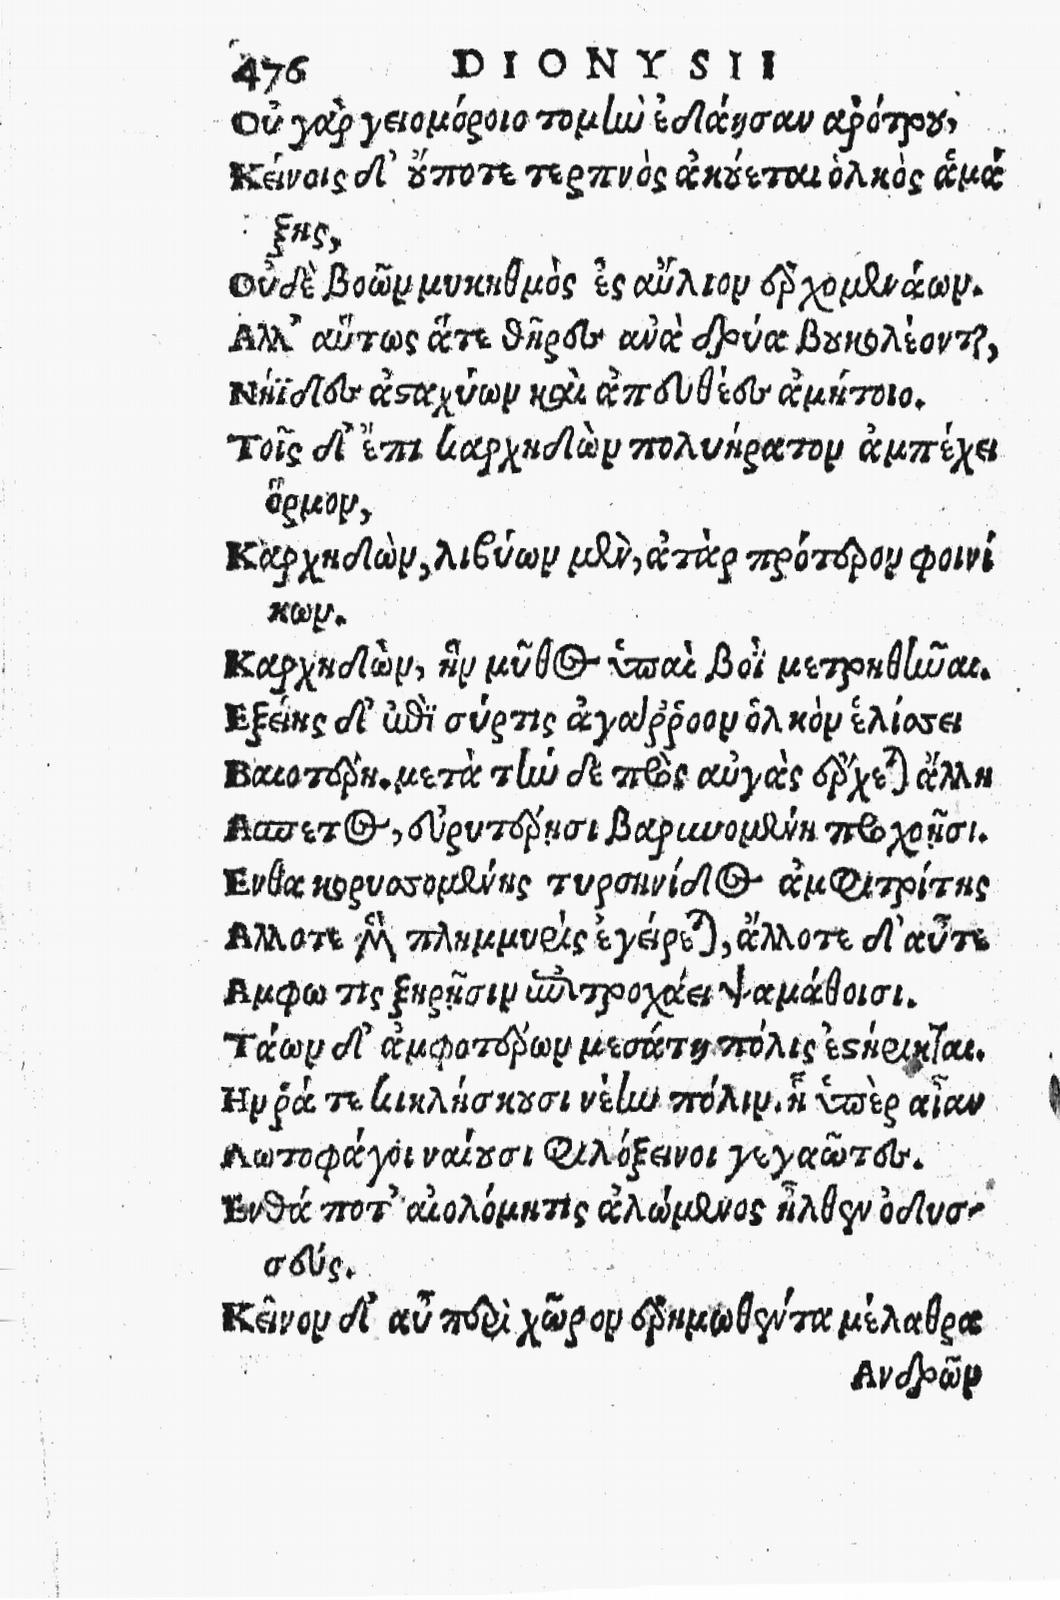 476 DIONYSII
Οὐ γὰρ γειομόροιο τομὴν ἐδάησαν ἀρότρου,
Κείνοις δ' οὔποτε τερπνὸς ἀκούεται ὁλκὸς ἁμά
ξης,
Οὐδὲ βοῶν μυκηθμὸς ἐς αὔλιον ἐρχομενάων.
Ἀλλ' αὕτως ἅτε θῆρες ἀνὰ δρύα βουκολέονται,
Νήϊδες ἀσταχύων καὶ ἀπευθέες ἀμήτοιο.
Τοῖς δ' ἔπι καρχηδὼν πολυήρατον ἀμπέχει
ὅρμον,
Καρχηδὼν, λιβύων μὲν, ἀτὰρ πρότερον φοινί
κων.
Καρχηδὼν, ἣν μῦθος ὑπαὶ βοῒ μετρηθῆναι.
Ἑξείης δ' ἐπὶ σύρτις ἀγάῤῥοον ὁλκὸν ἑλίσσει
Βαιοτέρη. μετὰ τὴν δὲ πρὸς αὐγὰς ἔρχεται ἄλλη
Ἄσπετος, εὐρυτέρῃσι βαρυνομένη προχοῇσι.
Ἔνθα κορυσσομένης τυρσηνίδος ἀμφιτρίτης
Ἄλλοτε μὲν πλημμυρὶς ἐγείρεται, ἄλλοτε δ' αὖτε
Ἄμπωτις ξηρῇσιν ἐπιτροχάει ψαμάθοισι.
Τάων δ' ἀμφοτέρων μεσάτη πόλις ἐστήρικται.
Ἥν ῥά τε κικλήσκουσι νέην πόλιν. ἧ ὑπὲρ αἶαν
Λωτοφάγοι ναίουσι φιλόξεινοι γεγαῶτες.
Ἔνθά ποτ' αἰολόμητις ἀλώμενος ἦλθεν ὀδυσ-
σεύς.
Κεῖνον δ' αὖ περὶ χῶρον ἐρημωθέντα μέλαθρα
Ἀνδρῶν